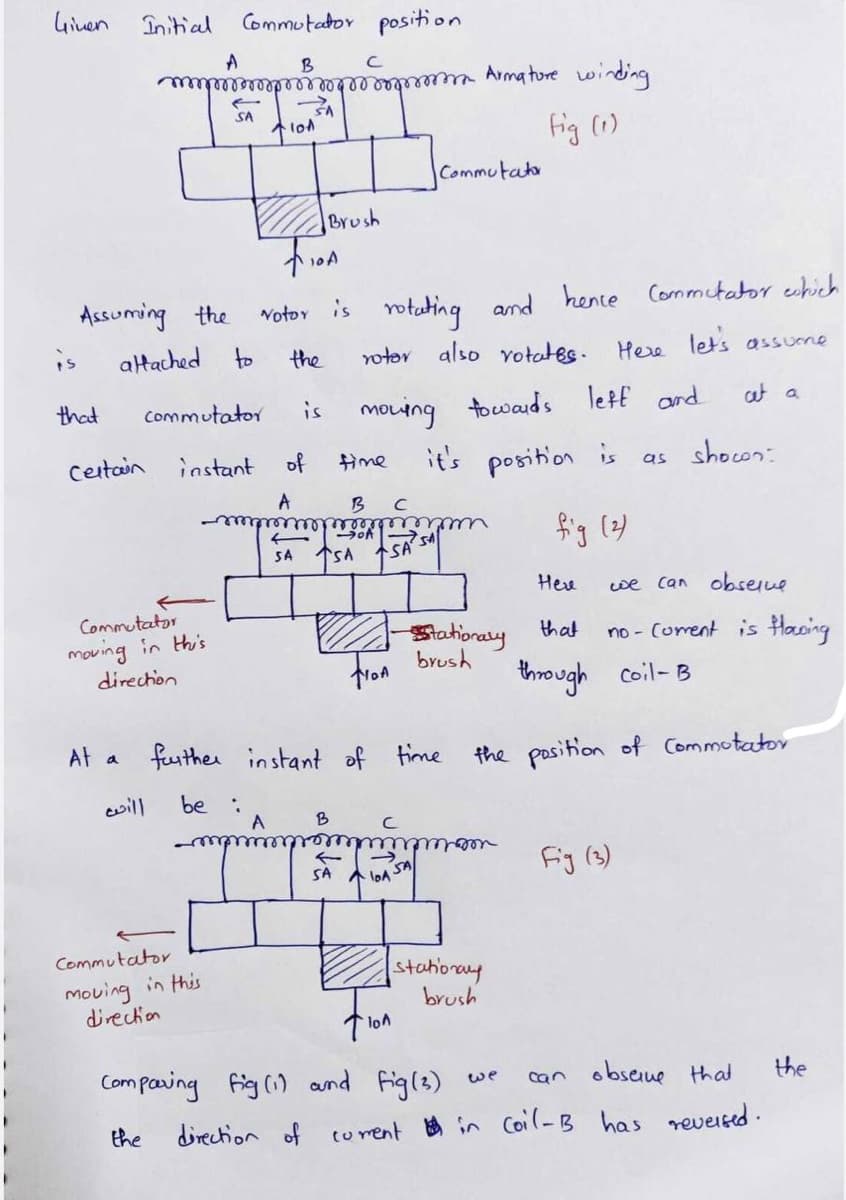 Given Initial Commutator position
A B C
Armature winding
5A 5A
10A
Fig (1)
Commutator
Brush
10A
Assuming the rotor is rotating and hence Commutator which
is attached to the rotor also rotates. Here let's assume
that commutator is moving towards left and at a
certain instant of time it's position is as shown:
A B C
fig (2)
0A 5A
5A 5A 5A
Here we can observe
Commutator
moving in this
direction
Stationary
brush
that no-current is flowing
10A
through coil-B
At a further instant of time the position of Commutator
will be :
A B C
Fig (3)
5A 10A 5A
Commutator
moving in this
direction
stationary
brush
10A
Comparing Fig (1) and Fig (3) we can observe that the
the direction of current in Coil-B has reversed.